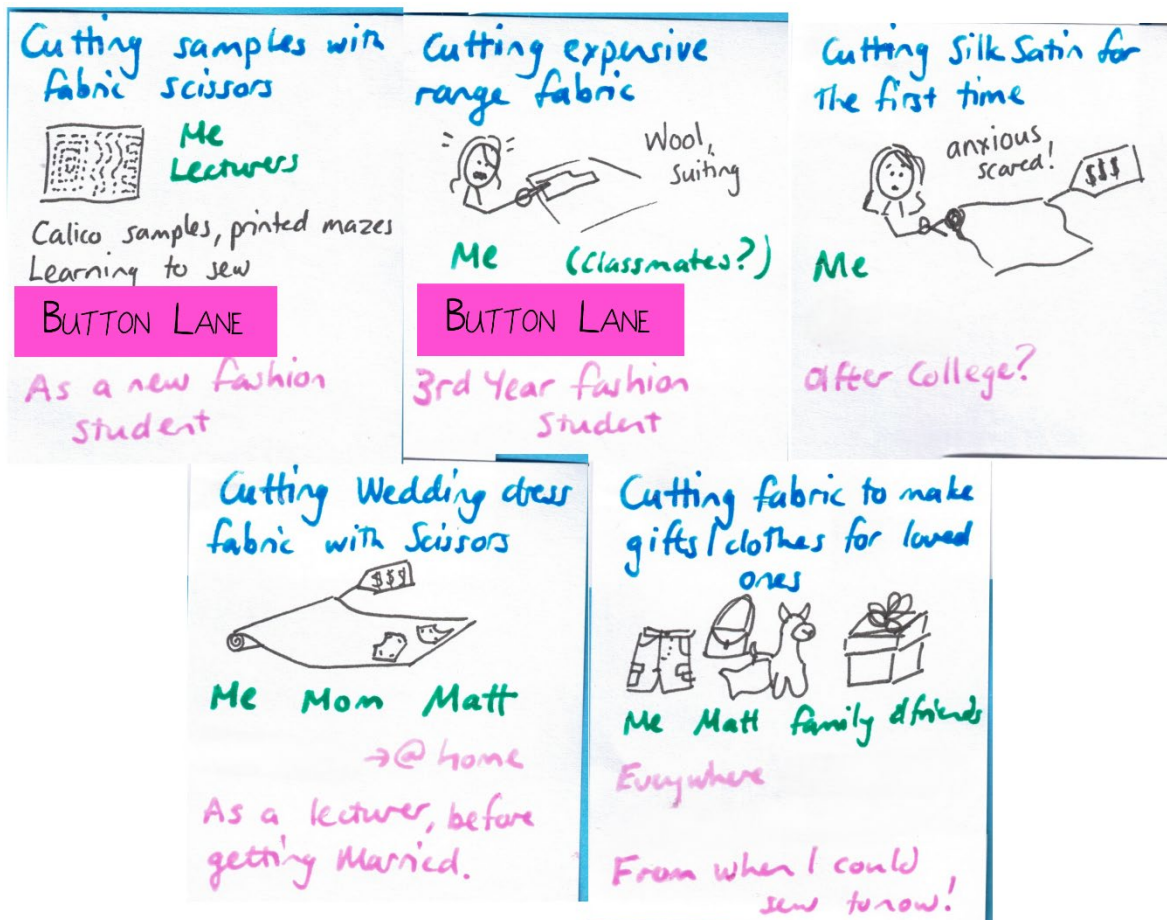 Cutting samples with
fabric scissors
Me
Lecturers
Calico samples, printed mazes
Learning to sew
BUTTON LANE
As a new fashion
student
Cutting expensive
range fabric
Wool,
suiting
Me (Classmates?)
BUTTON LANE
3rd Year fashion
student
Cutting Silk Satin for
the first time
anxious
scared!
$$$
Me
After College?
Cutting Wedding dress
fabric with Scissors
$$$
Me Mom Matt
→@ home
As a lecturer, before
getting Married.
Cutting fabric to make
gifts/clothes for loved
ones
Me Matt family & friends
Everywhere
From when I could
sew to now!